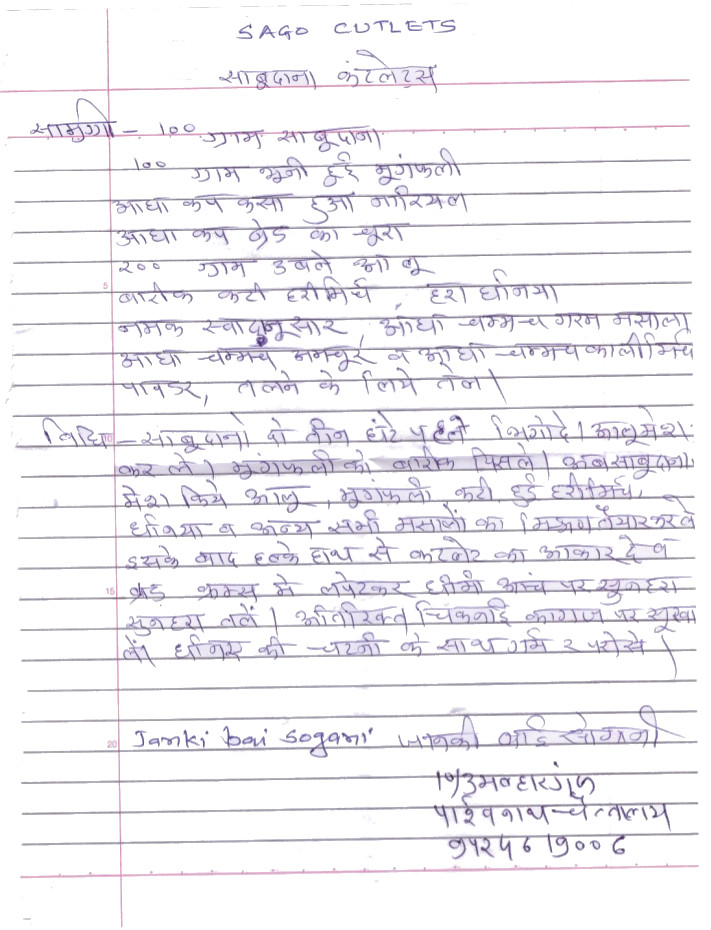 SAGO CUTLETS
साबूदाना कंटलेट्स
सामग्री - 100 ग्राम साबूदाना
100 ग्राम भूनी हुई मूगंफली
आधा कप कसा हुआ नारियल
आधा कप ब्रेड का चूरा
२०० ग्राम उबले आलू
5 बारीक कटी हरीमिर्च, हरा धनिया
नमक स्वादनुसार, आधा चम्मच गरम मसाला,
आधा चम्मच अमचूर व आधा चम्मच कालीमिर्च
पावडर, तलने के लिये तेल।
विधि - साबूदानो दो तीन घंटे पहले भिगोदे। आलू मेश
कर ले। मूंगफली को बारीक पिसले। अब साबूदाना,
मेश किये आलू, मूंगफली, कटी हुई हरीमिर्च,
धनिया व अन्य सभी मसालों का मिश्रण तैयार करले
इसके बाद हल्के हाथ से कटलेट का आकार दे व
15 ब्रेड क्रम्स मे लपेटकर धीमी आंच पर सुनहरा
सुनहरा तलें। अतिरिक्त चिकनाई कागज पर सूखा
लें। धनिए की चटनी के साथ गर्म २ परोसे।
20 Janki bai sogani जानकी बाई सोगानी
पार्श्वनाथ चैत्यालय